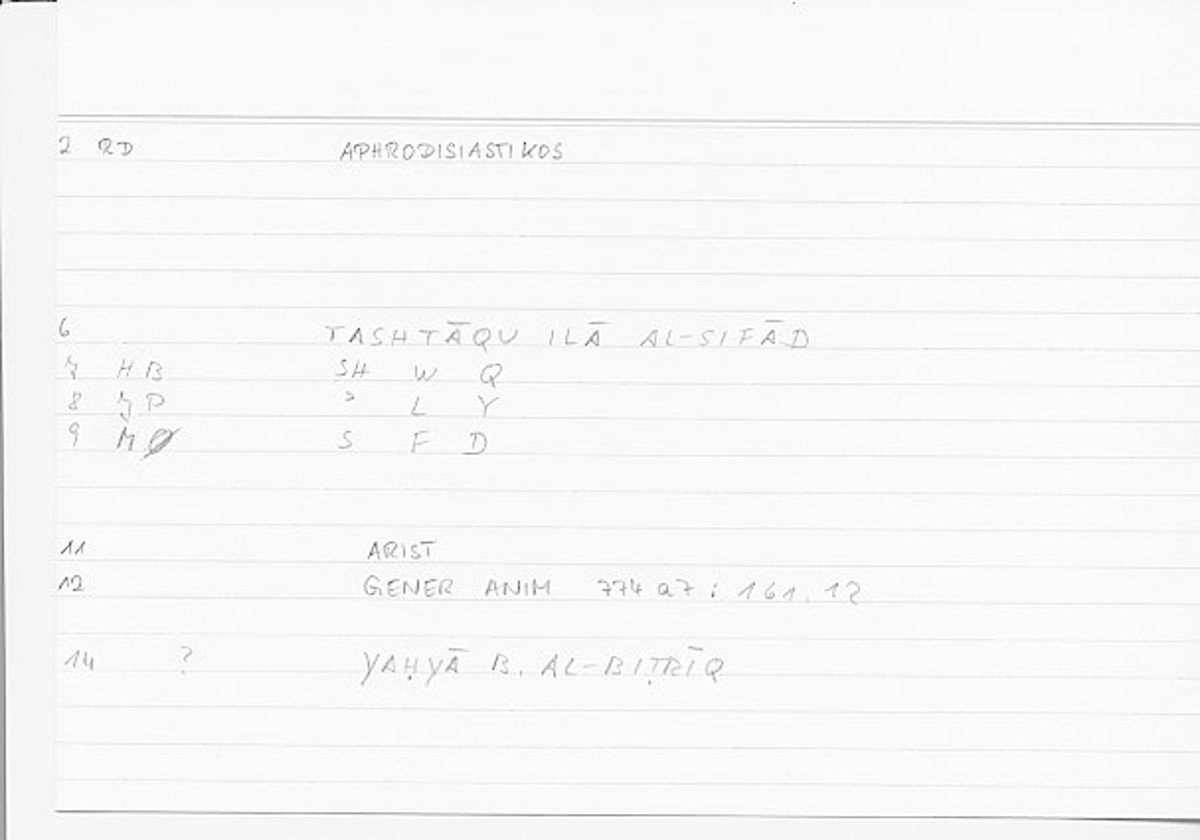 2 RD APHRODISIASTIKOS
6 TASHTĀQU ILĀ AL-SIFĀD
7 HB SH W Q
8 JP ʾ L Y
9 M S F D
11 ARIST
12 GENER ANIM 774 a7 ; 161.12
14 ? YAḤYĀ B. AL-BIṬRĪQ